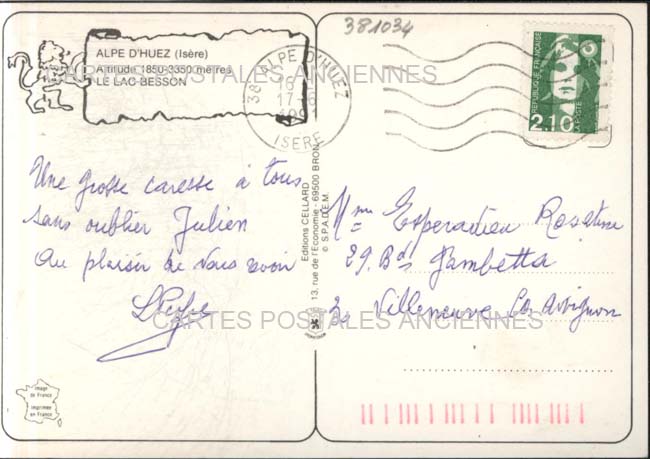 381034
ALPE D'HUEZ (Isère)
Altitude 1850-3350 mètres
LE LAC BESSON
CARTES POSTALES ANCIENNES
38 ALPE D'HUEZ
ISERE
REPUBLIQUE FRANÇAISE
LA POSTE
2,10
Une grosse caresse à tous
sans oublier Julien
Au plaisir de vous voir
Editions CELLARD
13, rue de l'Economie - 69500 BRON
© S.P.A.D.E.M.
Mme Esperadieu
29. Bd Gambetta
Villeneuve Les Avignon
CARTES POSTALES ANCIENNES
image
de France
imprimée
en France